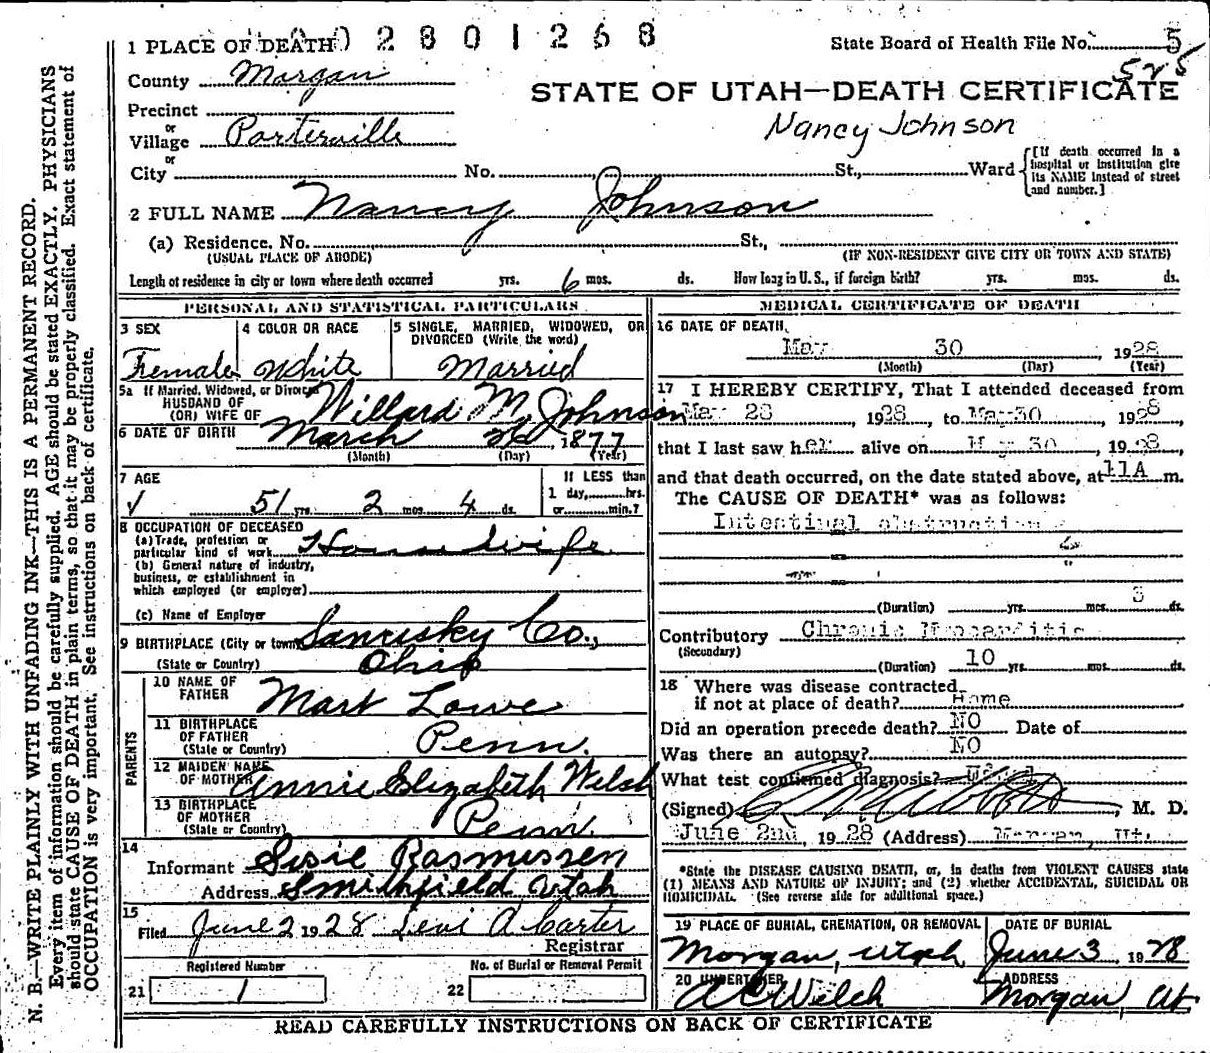 1 PLACE OF DEATH 0 2 8 0 1 2 6 8
State Board of Health File No. 5
525
County Morgan
STATE OF UTAH—DEATH CERTIFICATE
Precinct
or
Village Porterville
Nancy Johnson
or
City No. St., Ward
{[If death occurred in a hospital or institution give its NAME instead of street and number.]
2 FULL NAME Nancy Johnson
(a) Residence. No. St.,
(USUAL PLACE OF ABODE) (IF NON-RESIDENT GIVE CITY OR TOWN AND STATE)
Length of residence in city or town where death occurred yrs. 6 mos. ds. How long in U. S., if foreign birth? yrs. mos. ds.
PERSONAL AND STATISTICAL PARTICULARS
3 SEX
Female
4 COLOR OR RACE
White
5 SINGLE, MARRIED, WIDOWED, OR DIVORCED (Write the word)
Married
5a If Married, Widowed, or Divorced
HUSBAND OF
(OR) WIFE OF Willard M. Johnson
6 DATE OF BIRTH March 26, 1877
(Month) (Day) (Year)
7 AGE
√ 51 yrs. 2 mos. 4 ds.
If LESS than
1 day, hrs.
or min.?
8 OCCUPATION OF DECEASED
(a) Trade, profession or
particular kind of work Housewife
(b) General nature of industry,
business, or establishment in
which employed (or employer)
(c) Name of Employer
9 BIRTHPLACE (City or town) Sanrisky Co.,
(State or Country) Ohio
PARENTS
10 NAME OF
FATHER Mart Lowe
11 BIRTHPLACE
OF FATHER
(State or Country) Penn.
12 MAIDEN NAME
OF MOTHER Annie Elizabeth Welsh
13 BIRTHPLACE
OF MOTHER
(State or Country) Penn.
14
Informant Susie Rasmussen
Address Smithfield, Utah
15
Filed June 2 1928 Levi A Carter
Registrar
Registered Number
21 1
No. of Burial or Removal Permit
22
MEDICAL CERTIFICATE OF DEATH
16 DATE OF DEATH
May 30, 1928
(Month) (Day) (Year)
17 I HEREBY CERTIFY, That I attended deceased from
May 28, 1928, to May 30, 1928
that I last saw her alive on May 30, 1928
and that death occurred, on the date stated above, at 11A m.
The CAUSE OF DEATH* was as follows:
Intestinal obstruction
(Duration) yrs. mos. 3 ds.
Contributory Chronic Myocarditis
(Secondary)
(Duration) 10 yrs. mos. ds.
18 Where was disease contracted
if not at place of death? Home
Did an operation precede death? NO Date of
Was there an autopsy? NO
What test confirmed diagnosis?
(Signed) , M. D.
June 2nd, 1928 (Address) Morgan, Ut.
*State the DISEASE CAUSING DEATH, or, in deaths from VIOLENT CAUSES state
(1) MEANS AND NATURE OF INJURY; and (2) whether ACCIDENTAL, SUICIDAL OR
HOMICIDAL. (See reverse side for additional space.)
19 PLACE OF BURIAL, CREMATION, OR REMOVAL
Morgan, Utah
DATE OF BURIAL
June 3, 1928
20 UNDERTAKER
A C Welch
ADDRESS
Morgan, Ut
READ CAREFULLY INSTRUCTIONS ON BACK OF CERTIFICATE
N. B.—WRITE PLAINLY WITH UNFADING INK—THIS IS A PERMANENT RECORD.
Every item of information should be carefully supplied. AGE should be stated EXACTLY. PHYSICIANS
should state CAUSE OF DEATH in plain terms, so that it may be properly classified. Exact statement of
OCCUPATION is very important. See instructions on back of certificate.